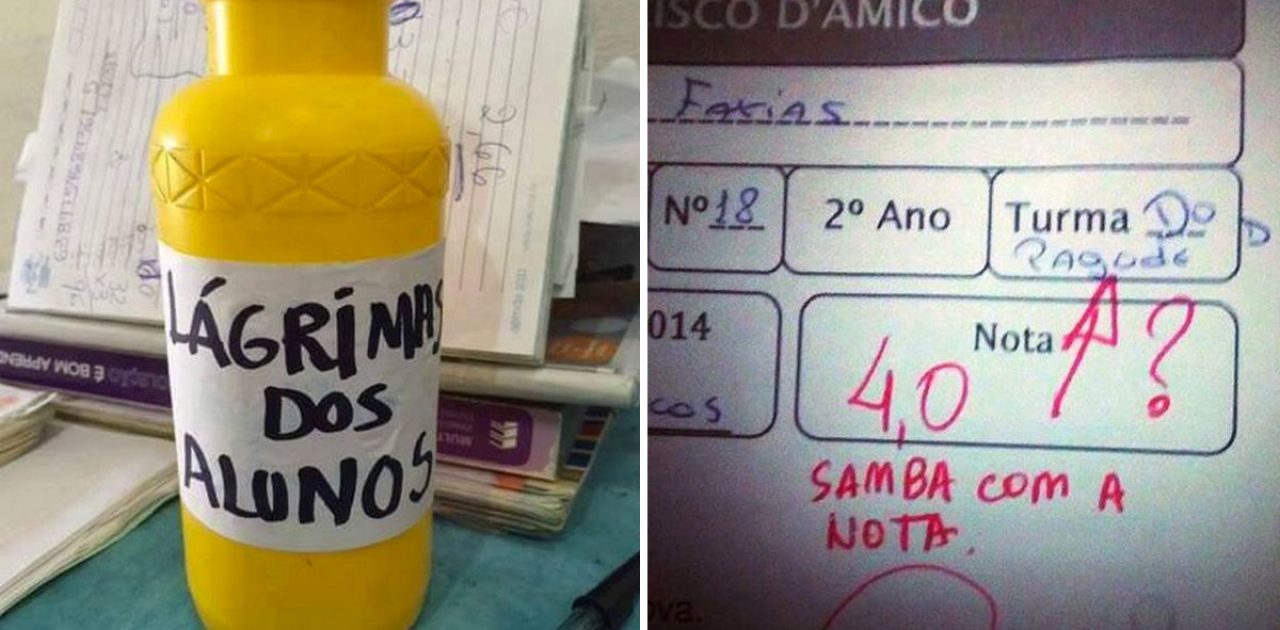 LÁGRIMAS
DOS
ALUNOS
2,66
ISCO D'AMICO
Farias
Nº 18
2º Ano
Turma Do D
Pagode
014
Nota ?
4,0
cos
SAMBA COM A
NOTA.
ova.